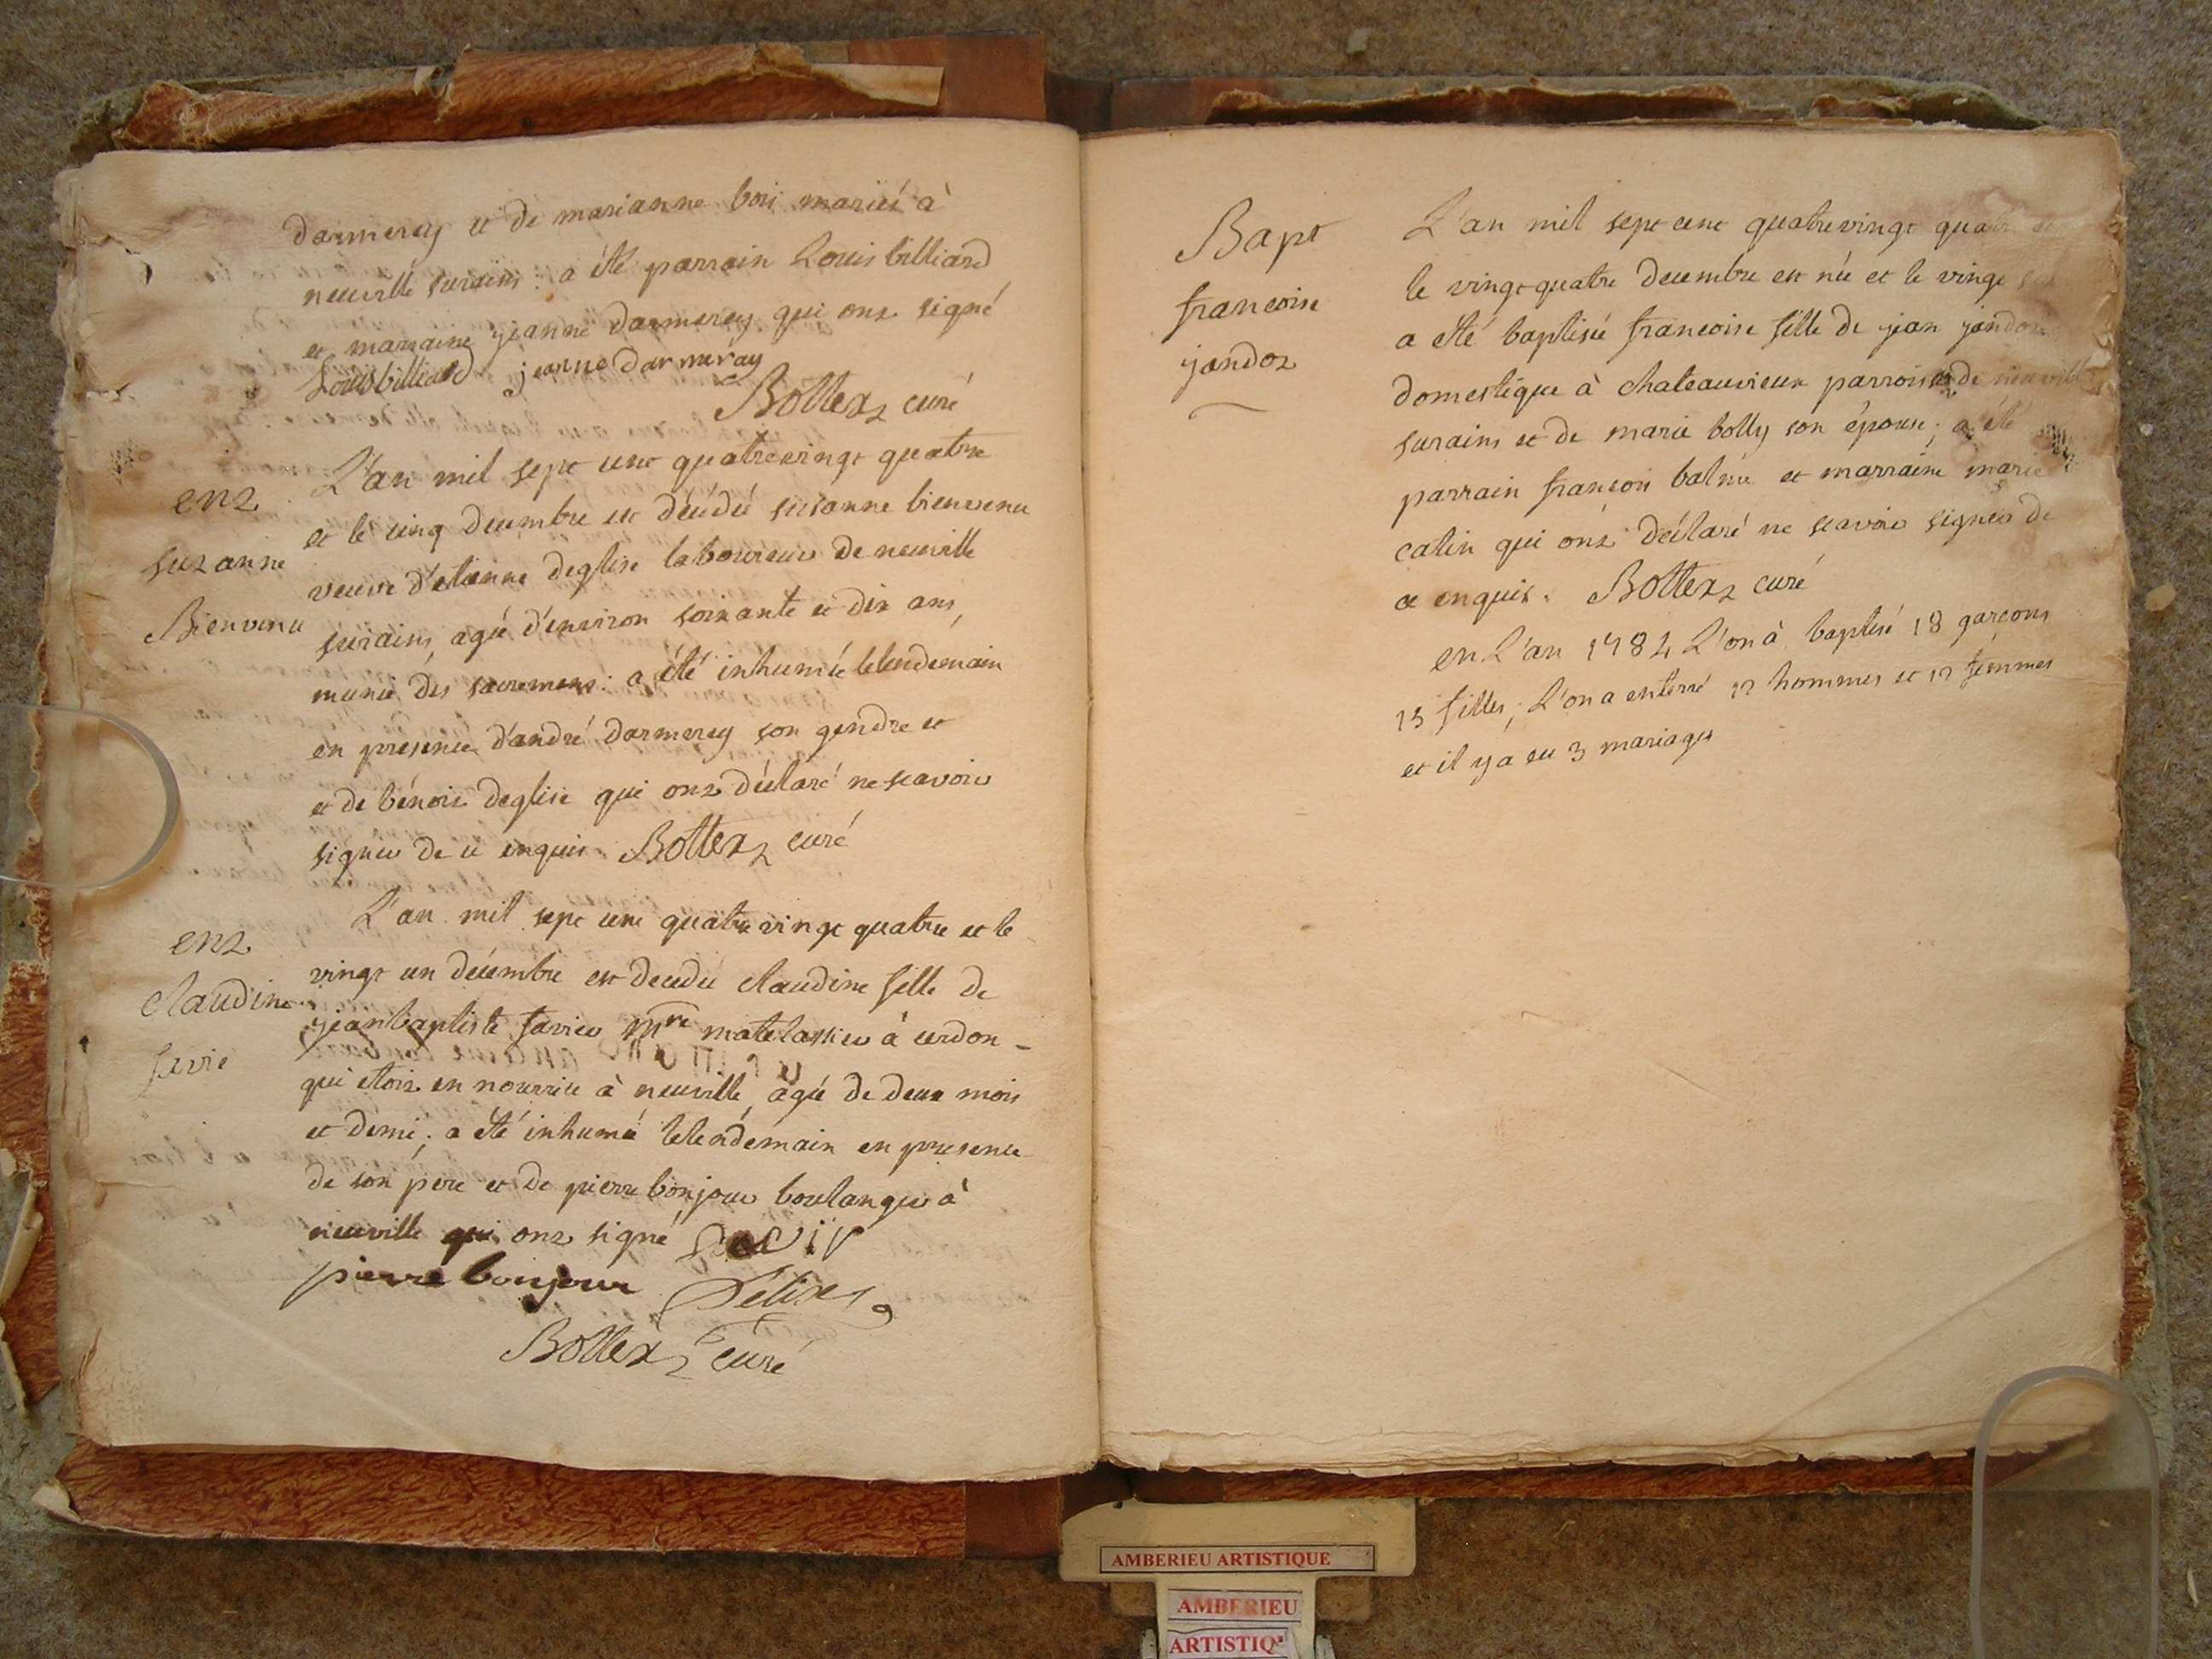 darmeray et de marianne bori mariés à
neuville surains : a été parrain Louis billiard
et marraine jeanne darmeray qui onz signé
Louis billiard jeanne darmeray
Bottex curé
enz
suzanne
Bienvenu
L'an mil sept cent quatrevingt quatre
et le cinq decembre est décédée susanne bienvenu
veuve d'etienne deglise laboureur de neuville
surains, agée d'environ soixante et dix ans,
munie des sacremens : a été inhumée lelendemain
en présence d'andré darmeray son gendre et
et de bénoit deglise qui onz déclaré ne scavoir
signer de ce enquis Bottex curé
enz
claudine
favie
L'an mil sept cent quatre vingt quatre et le
vingt un décembre est decedée claudine fille de
jean baptiste favier mre matelassier à cerdon
qui etoit en nourrice à neuville agée de deux mois
et demi ; a été inhumé lelendemain en presence
de son pere et de pierre bonjour boulanger à
neuville qui onz signé
pierre bonjour
Bottex curé
Bapt
francoise
jandoz
L'an mil sept cent quatrevingt quatre et
le vingtquatre decembre est née et le vingt
a eté baptisée francoise fille de jean jandoz
domestique à chateauvieux parroisse de neuville
surains et de marie bolly son épouse ; a été
parrain francois balme et marraine marie
catin qui onz déclaré ne scavoir signer de
ce enquis. Bottex curé
en L'an 1784 L'on à baptisé 18 garcons
15 filles ; L'on a enterré 12 hommes et 12 femmes
et il y a eu 3 mariages
AMBERIEU ARTISTIQUE
AMBERIEU
ARTISTIQ